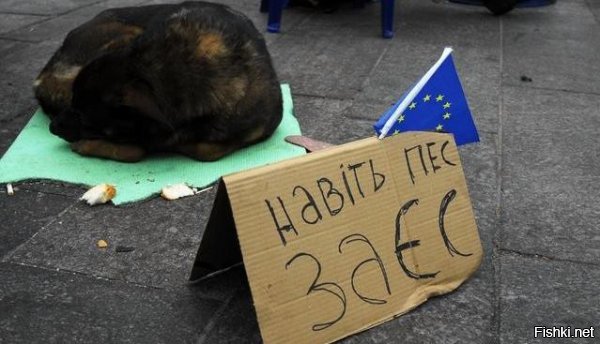 навіть пес
зАєС
Fishki.net